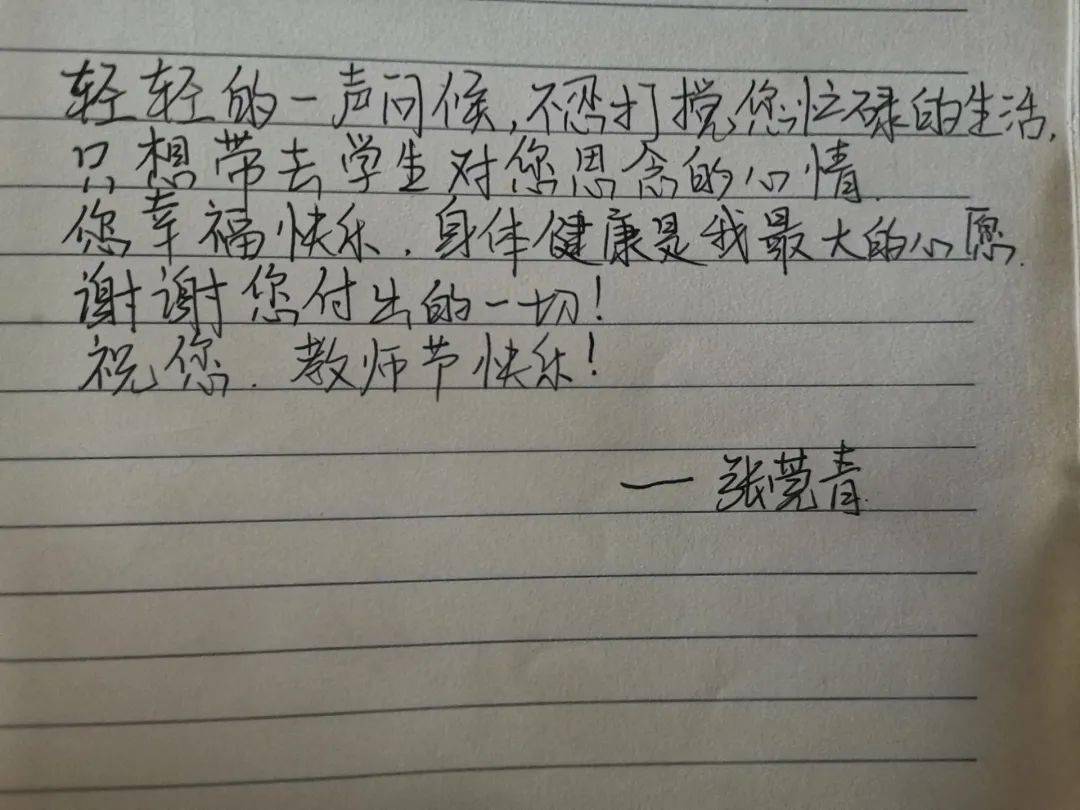 轻轻的一声问候,不恐打搅您忙碌的生活,
只想带去学生对您思念的心情.
您幸福快乐.身体健康是我最大的心愿.
谢谢您付出的一切!
祝您.教师节快乐!
—张莞青.